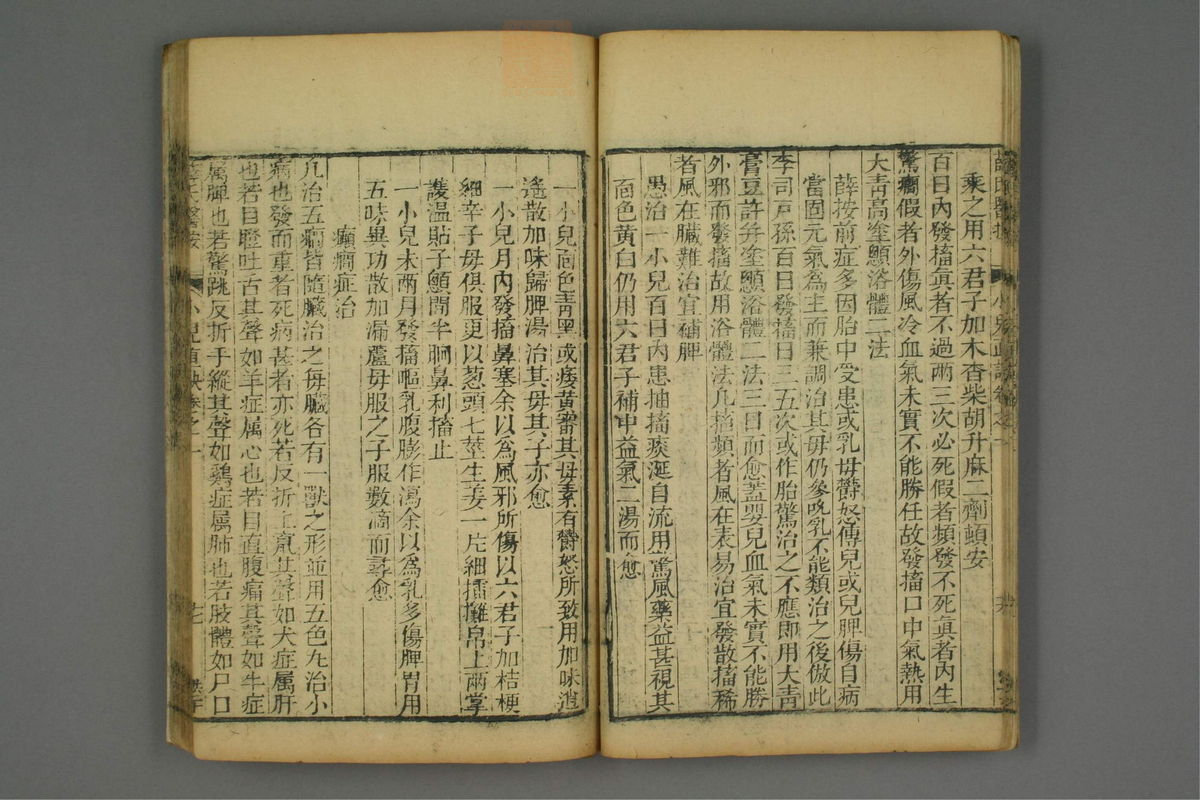 乘之用六君子加木香柴胡升麻二劑頓安
百日內發搐眞者不過兩三次必死假者頻發不死眞者內生
驚癇假者外傷風冷血氣未實不能勝任故發搐口中氣熱用
大靑高塗顖浴體二法
薛按前症多因胎中受患或乳母鬱怒傳兒或兒脾傷自病
當固元氣為主而兼調治其母仍參吮乳不能類治之後倣此
李司戸孫百日發搐日三五次或作胎驚治之不應即用大靑
膏豆許并塗顖浴體二法三日而愈蓋嬰兒血氣未實不能勝
外邪而發搐故用浴體法凡搐頻者風在表易治宜發散搐稀
者風在臟難治宜補脾
愚治一小兒百日內患抽搐痰涎自流用驚風藥益甚視其
面色黃白仍用六君子補中益氣二湯而愈
一小兒面色靑黑或痿黃審其母素有鬱怒所致用加味逍
遙散加味歸脾湯治其母其子亦愈
一小兒月內發搐鼻塞余以為風邪所傷以六君子加桔梗
細辛子母俱服更以葱頭七莖生姜一片細擂攤帛上兩掌
護温貼子顖間半晌鼻利搐止
一小兒未兩月發搐嘔乳腹膨作瀉余以為乳多傷脾胃用
五味異功散加漏蘆母服之子服數滴而尋愈
癲癇症治
凡治五癇皆隨臟治之每臟各有一獸之形並用五色丸治小
病也發而重者死病甚者亦死若反折上竄其聲如犬症属肝
也若目瞪吐舌其聲如羊症属心也若目直腹痛其聲如牛症
属脾也若驚跳反折手縱其聲如鷄症属肺也若肢體如尸口
薛氏醫按
小兒直訣卷之一